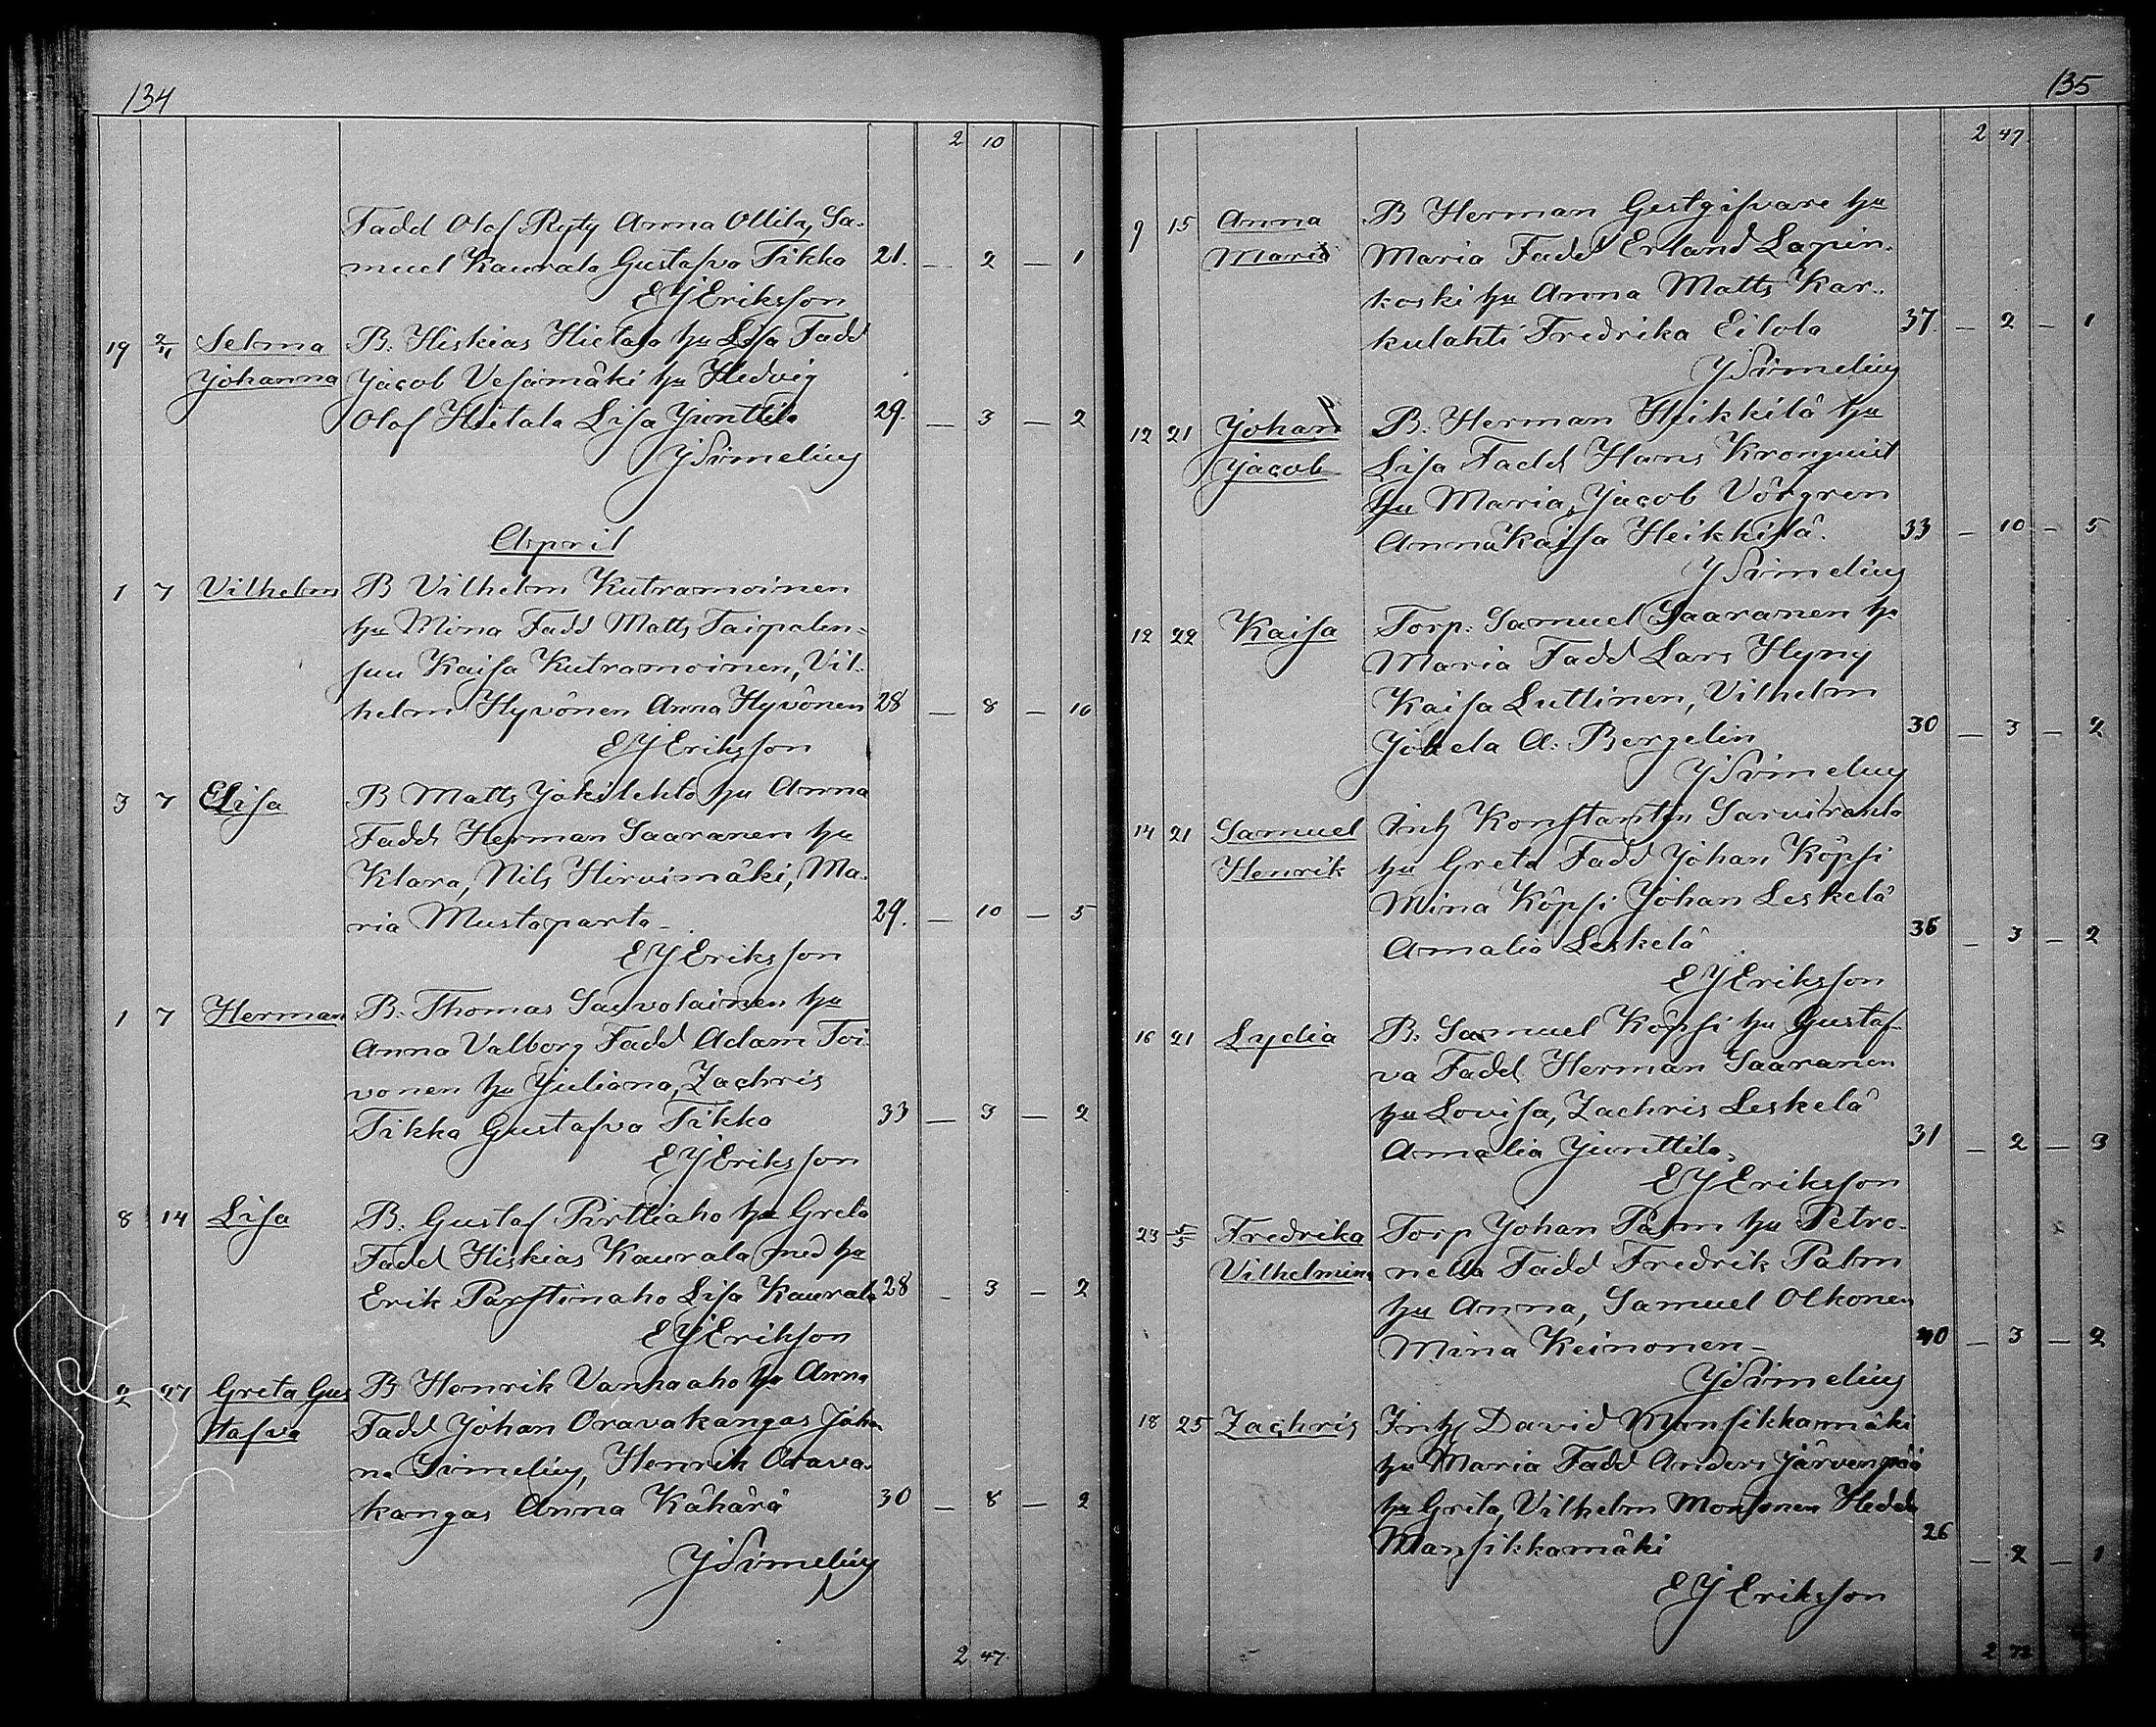 134
2 10
Fadd Olof Ryty Anna Ollila, Sa-
muel Kaurala Gustafva Tikka 21. — 2 — 1
E J Eriksson
19 2/4 Selma B. Hiskias Hietala hu Lisa Fadd
Johanna Jacob Vesamäki hu Hedvig
Olof Hietala Lisa Junttila 29. — 3 — 2
J Simelius
April
1 7 Vilhelm B Vilhelm Kutramoinen
hu Mina Fadd Matts Taipalen-
suu Kaisa Kutramoinen, Vil-
helm Hyvönen Anna Hyvönen 28 — 8 — 10
E J Eriksson
3 7 Elisa B Matts Jokilehto hu Anna
Fadd Herman Saaranen hu
Klara, Nils Hirvimäki, Ma-
ria Mustaparta 29. — 10 — 5
E J Eriksson
1 7 Herman B. Thomas Savolainen hu
Anna Valborg Fadd Adam Toi-
vonen hu Juliana, Zachris
Tikka Gustafva Tikka 33 — 3 — 2
E J Eriksson
8 14 Lisa B. Gustaf Pirttiaho hu Greta
Fadd Hiskias Kaurala med hu
Erik Parstinaho Lisa Kaurala 28 — 3 — 2
E J Erikson
2 27 Greta Gus B Henrik Vanhaaho hu Anna
tafva Fadd Johan Oravakangas Joha
na Simelius, Henrik Orava-
kangas Anna Kähärä 30 — 8 — 2
J Simelius
2 47
135
2 47
9 15 Anna B Herman Gestgifvare hu
Maria Maria Fadd Erland Lapin-
koski hu Anna Matts Kar-
kulahti Fredrika Eilola 37 — 2 — 1
J Simelius
12 21 Johan B. Herman Heikkilä hu
Jacob Lisa Fadd Hans Kronquist
hu Maria, Jacob Vörgren
Anna Kaisa Heikkilä. 33 — 10 — 5
J Simelius
12 22 Kaisa Torp. Samuel Saaranen h.
Maria Fadd Lars Hyny
Kaisa Luttinen, Vilhelm
Jokela A. Bergelin 30 — 3 — 2
J Simelius
14 21 Samuel Inh Konstantin Sarviranta
Henrik hu Greta Fadd Johan Köpsi
Mina Köpsi Johan Leskelä
Amalia Leskelä 36 — 3 — 2
E J Eriksson
16 21 Lydia B. Samuel Köpsi hu Gustaf-
va Fadd Herman Saaranen
hu Lovisa, Zachris Leskelä
Amalia Junttila. 31 — 2 — 3
E J Eriksson
23 5/5 Fredrika Torp Johan Palm hu Petro-
Vilhelmina nella Fadd Fredrik Palm
hu Anna, Samuel Olkonen
Mina Keinonen 40 — 3 — 2
J Simelius
18 25 Zachris Inh David Mansikkamäki
hu Maria Fadd Anders Järvenpää
hu Greta, Vilhelm Monsonen Hedda
Mansikkamäki 26 — 2 — 1
E J Eriksson